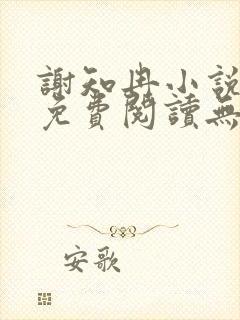 謝知冉小說
免費閱讀無
安歌